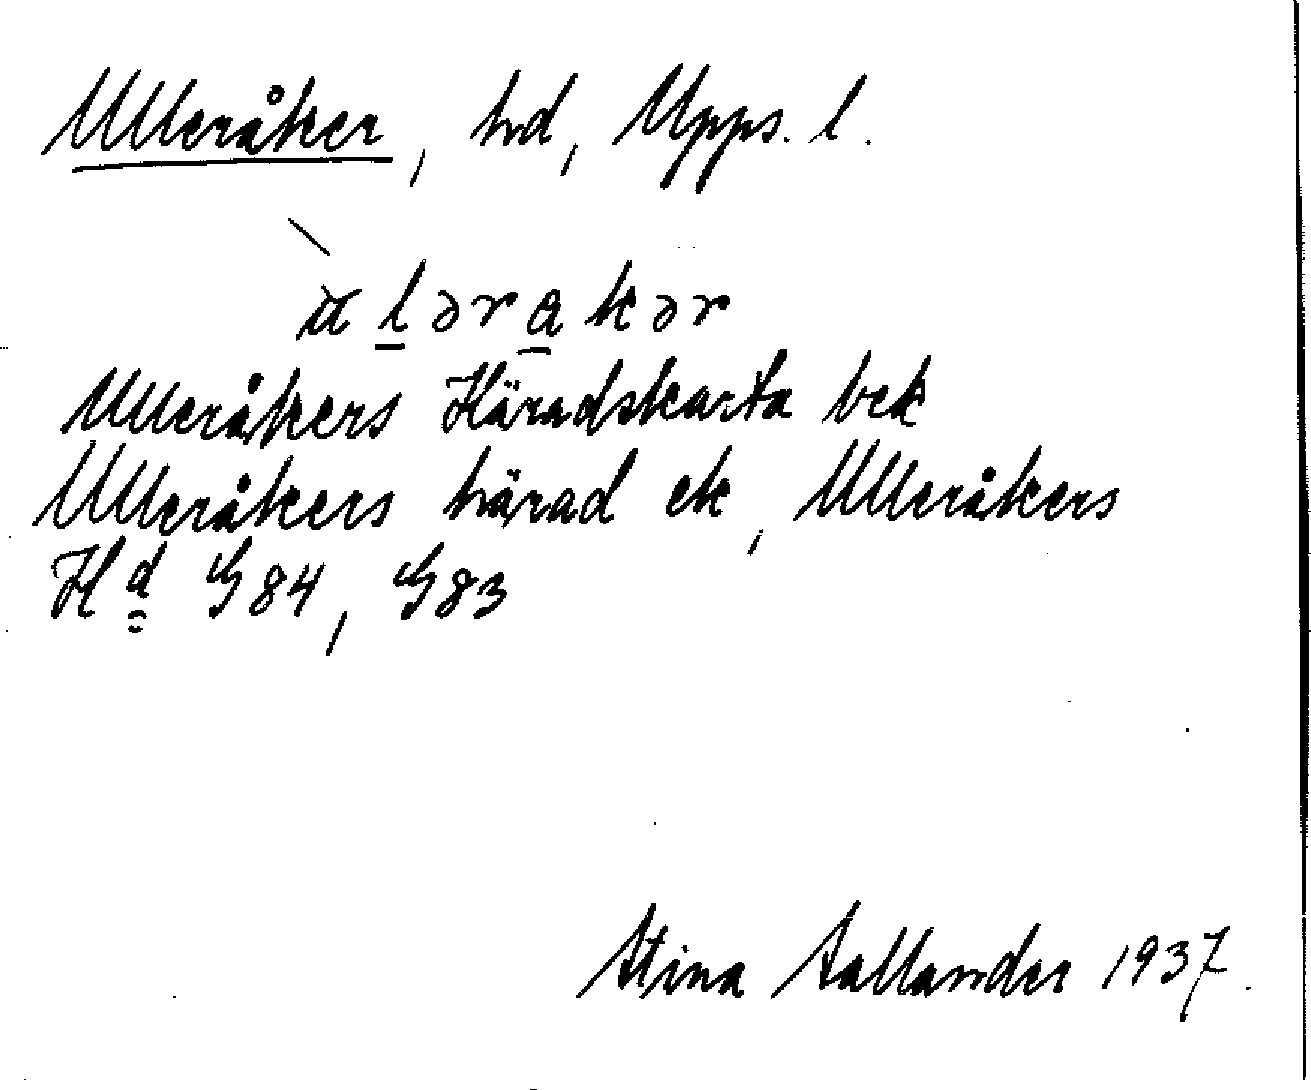 Ulleråker, hd, Upps. l.
ɯ̀lərakər
Ulleråkers Häradskarta bek
Ulleråkers härad ek, Ulleråkers
Hd G84, G83
Stina 1937.